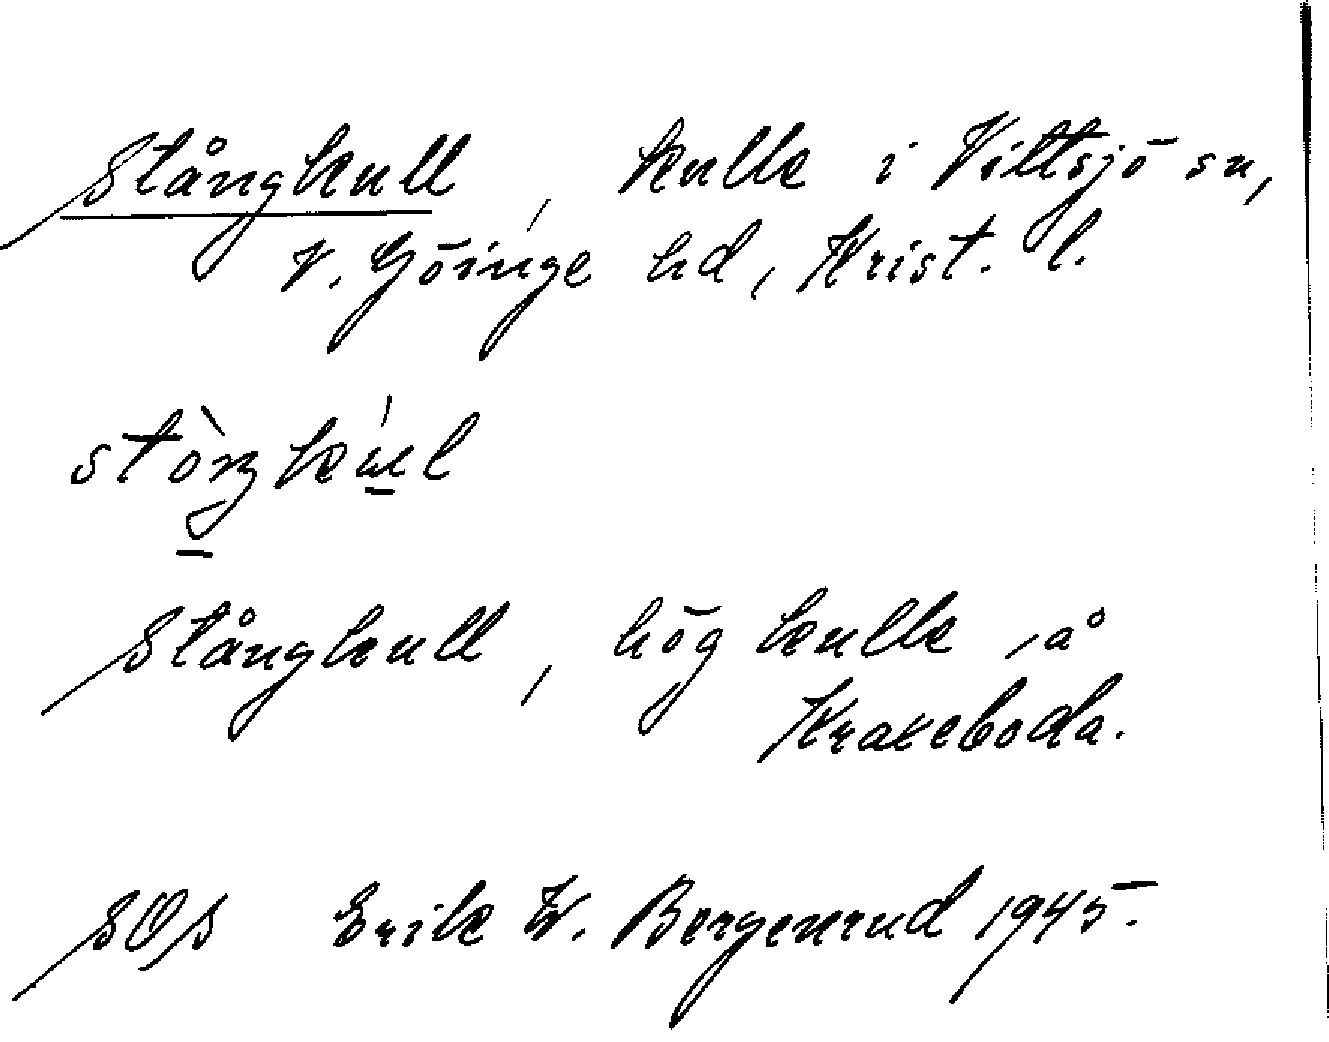 Stångkull, kulle i Vittsjö sn,
V. Göinge hd, Krist. l.
Stångkull, hög kulle å
Krakeboda.
SOS Erik W. Bergenrud 1945.